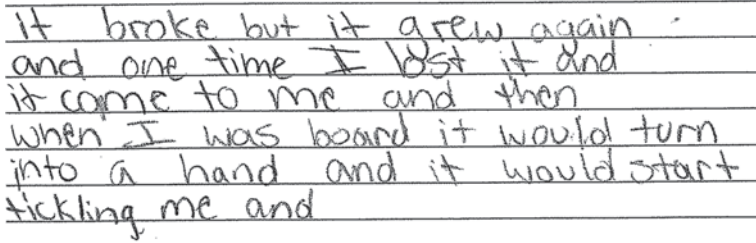 it broke but it grew again
and one time I lost it and
it came to me and then
when I was board it would turn
into a hand and it would start
tickling me and